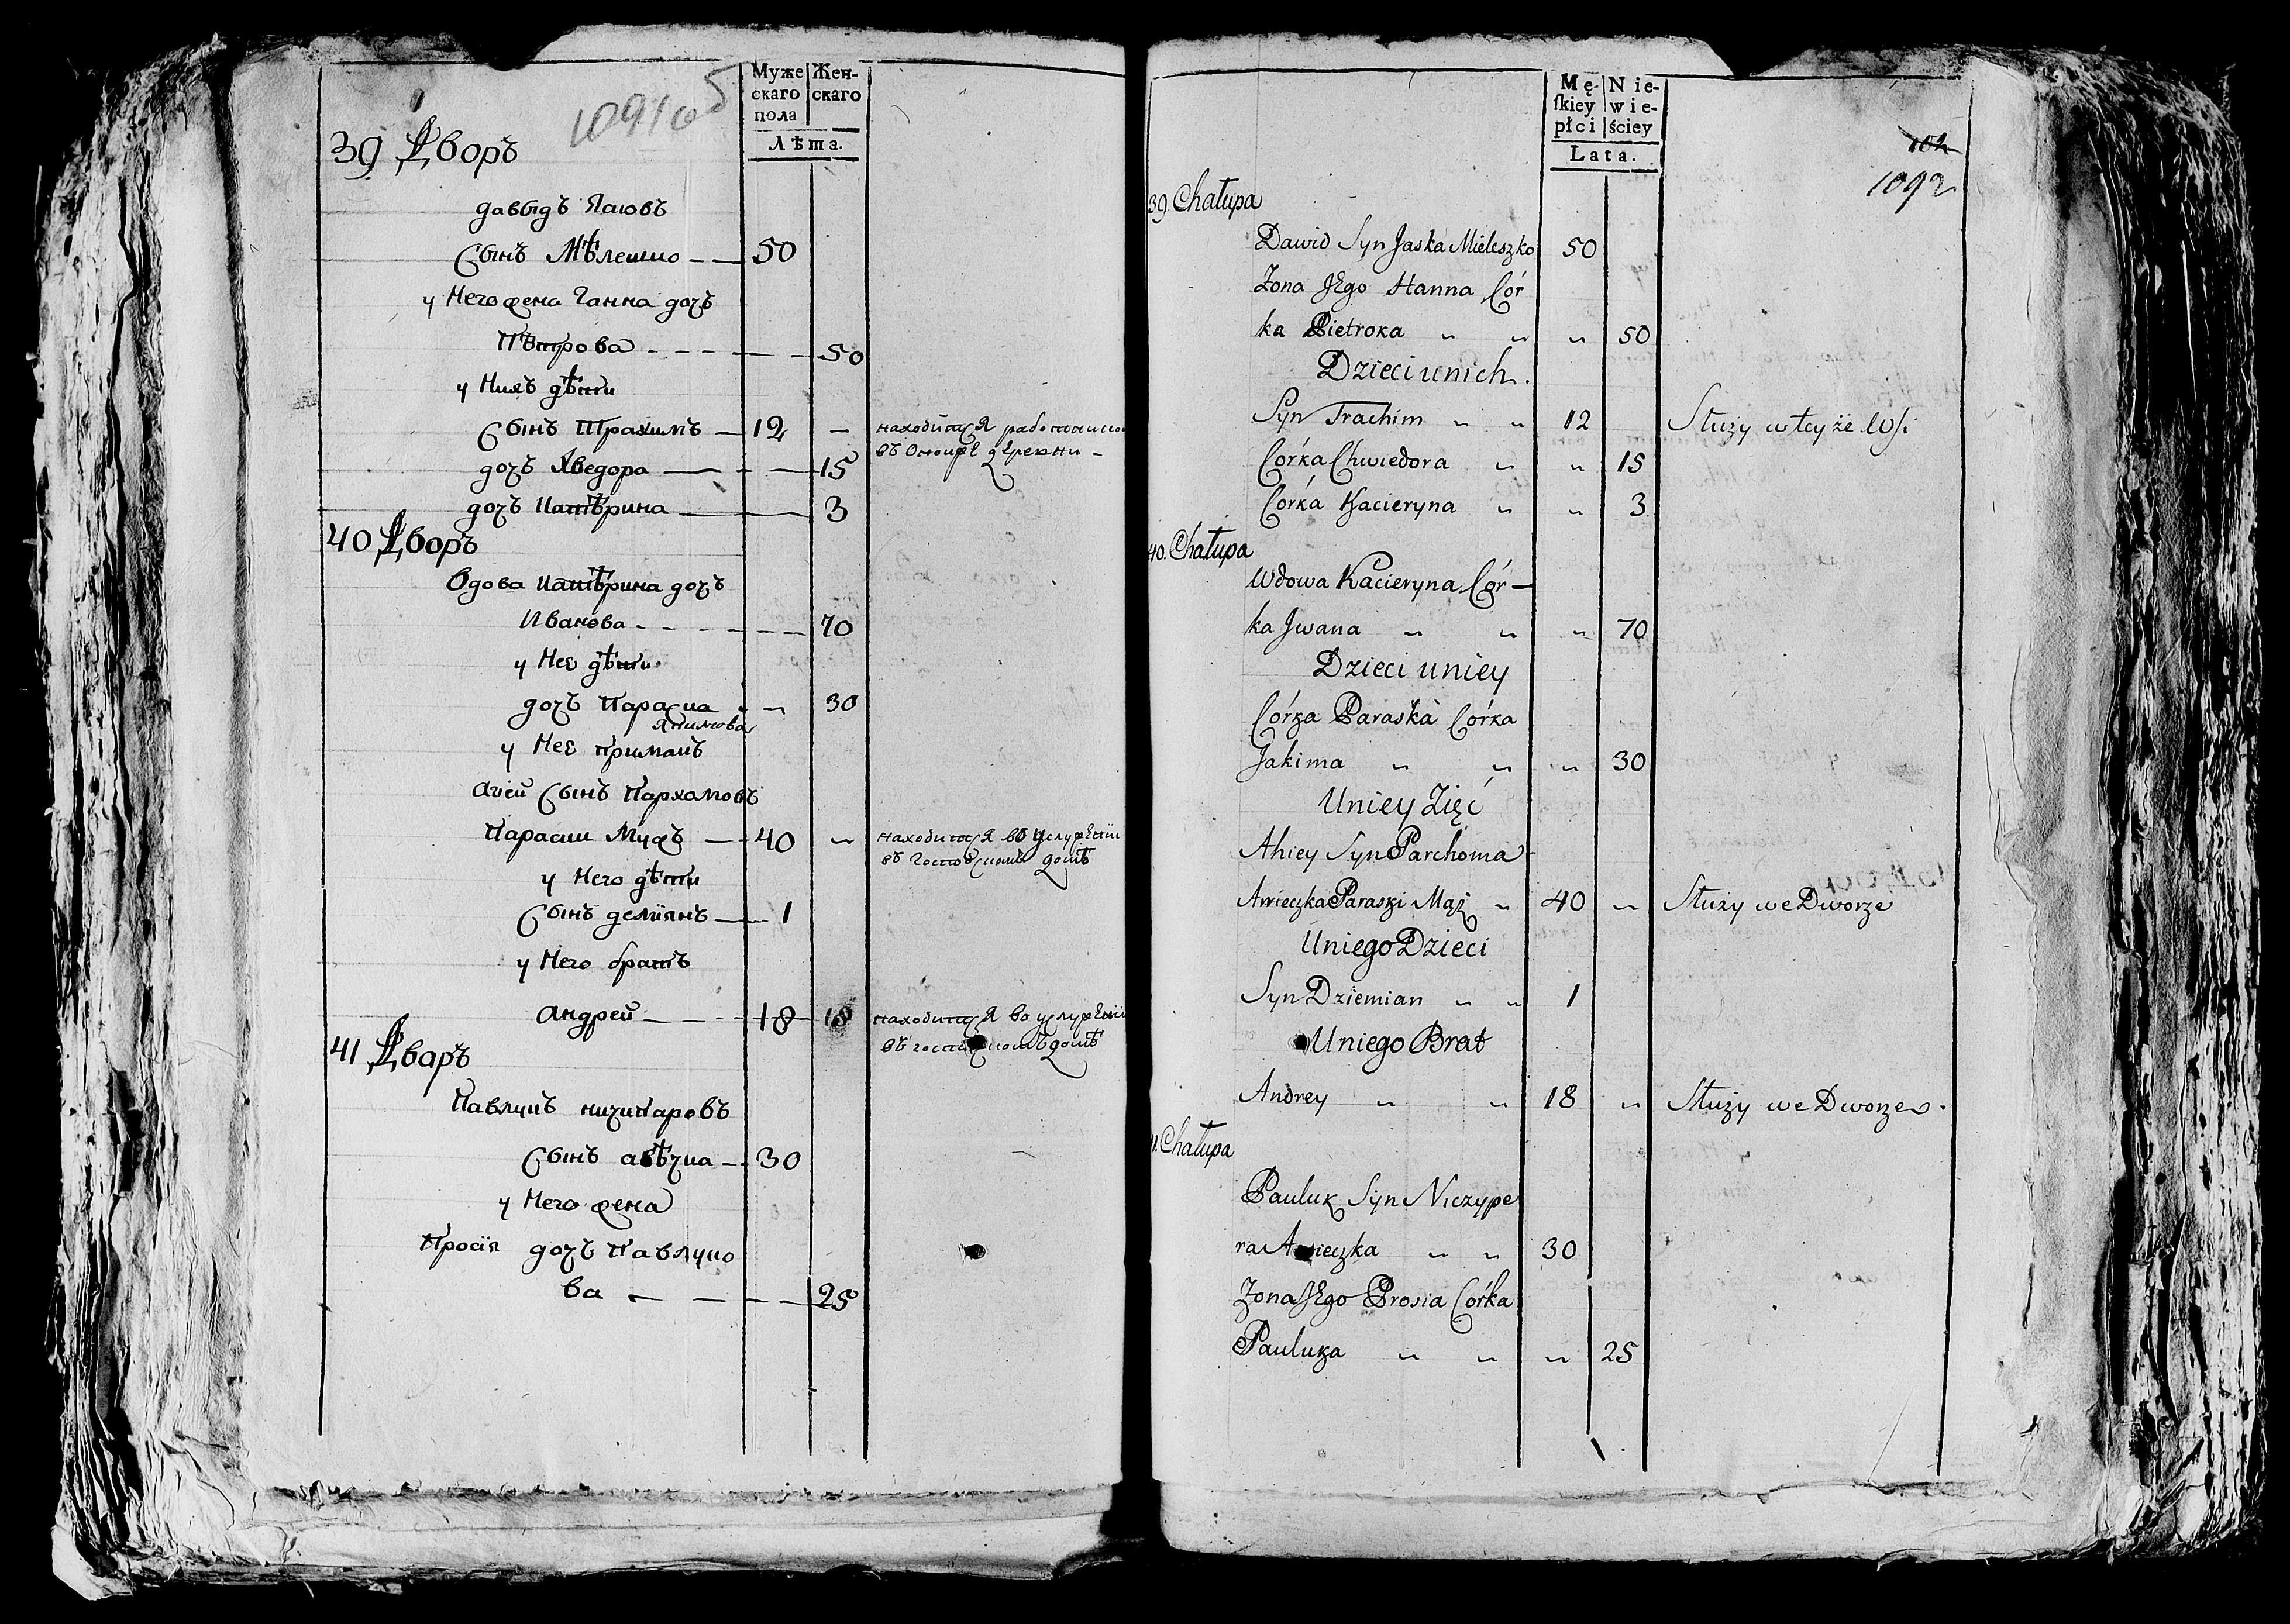 1091 об
Муже
скаго
пола
Жен-
скаго
Лѣта.
39 Дворъ
давыдъ Яковъ
Сынъ Мѣлешко 50
у Него жена Ганна дочъ
Пѣтрова 50
у Нихъ дѣти
Сынъ Трахимъ 12 — находитсЯ работникомъ
въ Оной жЕ дЕревни
дочъ Хведора 15
дочъ Катѣрина 3
40 Дворъ
Вдова Катѣрина дочъ
Иванова 70
у Нее дѣти
дочъ Параска 30
Якимова
у Нее Примакъ
Агей Сынъ Пархомовъ
Параски Мужъ 40 находитсЯ во услужЕніи
въ Господскомъ домѣ
у Него дѣти
Сынъ деміянъ 1
у Него братъ
андрей 18 18 находитсЯ во услужЕніи
въ господскомъ домѣ
41 Дваръ
Павлукъ ничипаровъ
Сынъ авѣчка 30
у Него жена
Просія дочъ Павлуко
ва 25
Mę-
skiey
płci
Nie-
wie-
ściey
Lata.
1092
39. Chałupa
Dawid Syn Jaska Mieleszko 50
Zona JEgo Hanna Cór
ka Pietroka „ „ „ 50
Dzieci unich.
Syn Trachim „ „ 12 Służy wtey że Wsi
Córka Chwiedora „ „ 15
Córka Kacieryna „ „ 3
40. Chałupa
Wdowa Kacieryna Cór—
ka Jwana „ „ „ 70
Dzieci uniey
Córka Paraska Córka
Jakima „ „ „ 30
Uniey Zięć
Ahiey Syn Parchoma
Awieczka Paraski Mąż „ 40 „ Służy we Dworze
Uniego Dzieci
Syn Dziemian „ „ 1
Uniego Brat
Andrey „ „ 18 „ Służy we Dworze.
1. Chałupa
Pauluk Syn Niczype
ra Awieczka „ „ 30
Zona JEgo Prosia Córka
Pauluka „ „ „ 25